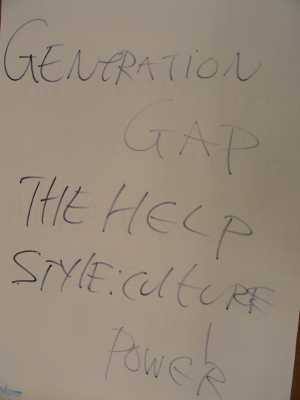 GENERATION
GAP
THE HELP
STYLE: culture
POWER